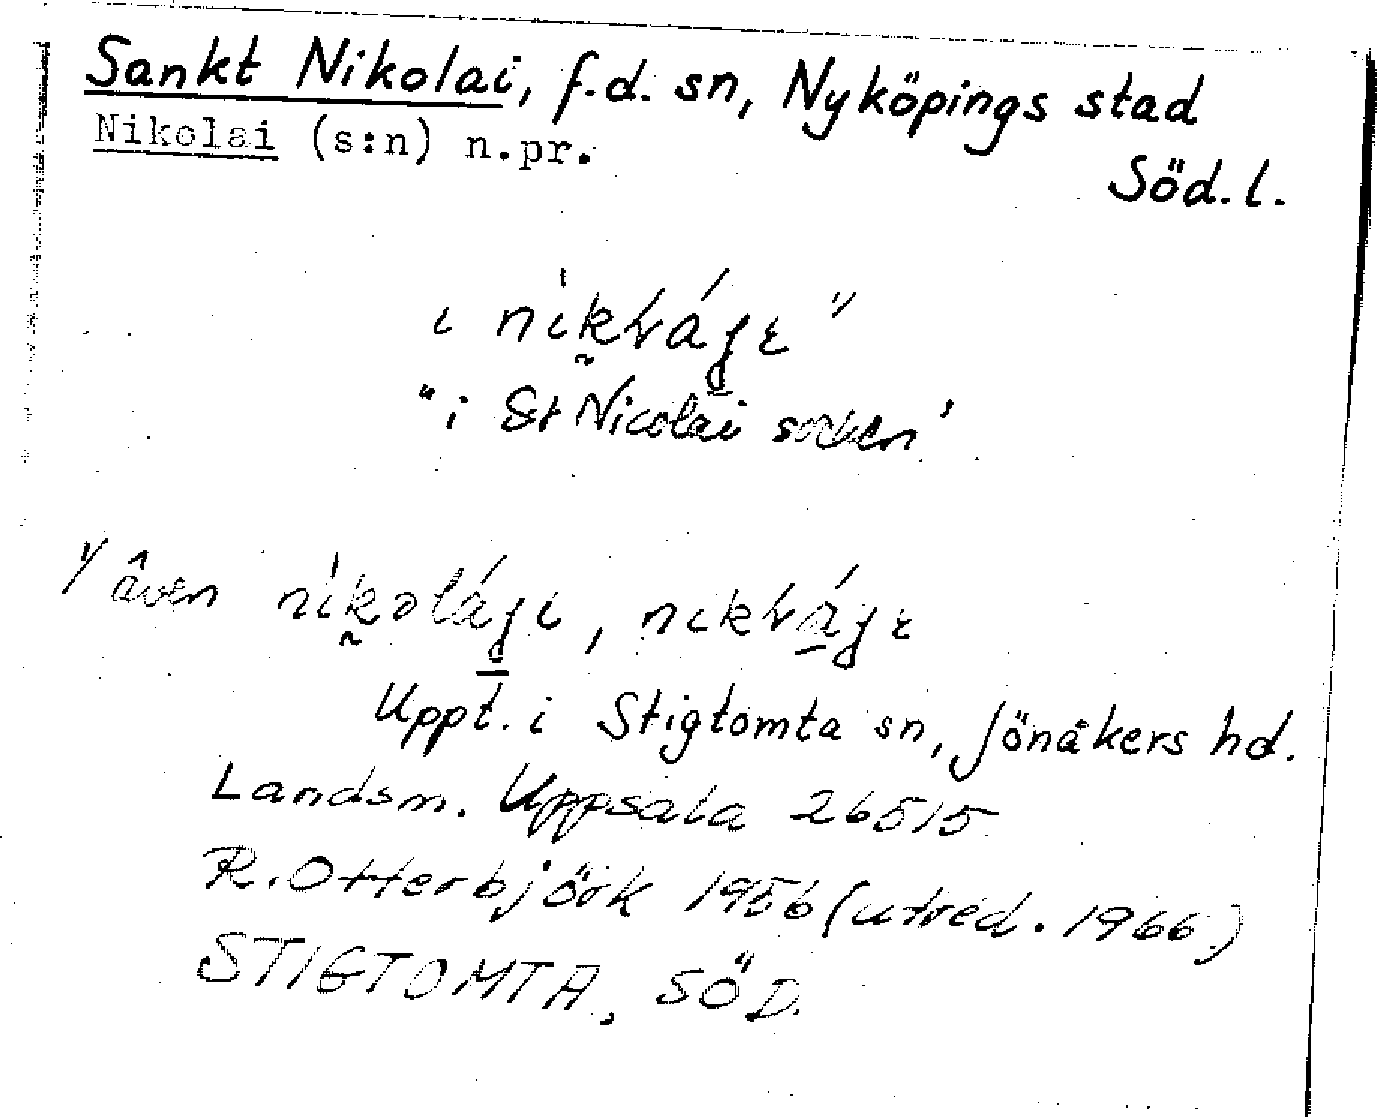 Sankt Nikolai, f.d. sn, Nyköpings stad
Nikolai (s:n) n.pr.
Söd.l.
i
"i St Nicolai socken'
1/ även
Uppt. i Stigtomta sn, Jönåkers hd.
Landsm. Uppsala 26515
R. Otterbjörk 1956 (utred. 1966.)
STIGTOMTA, SÖD.